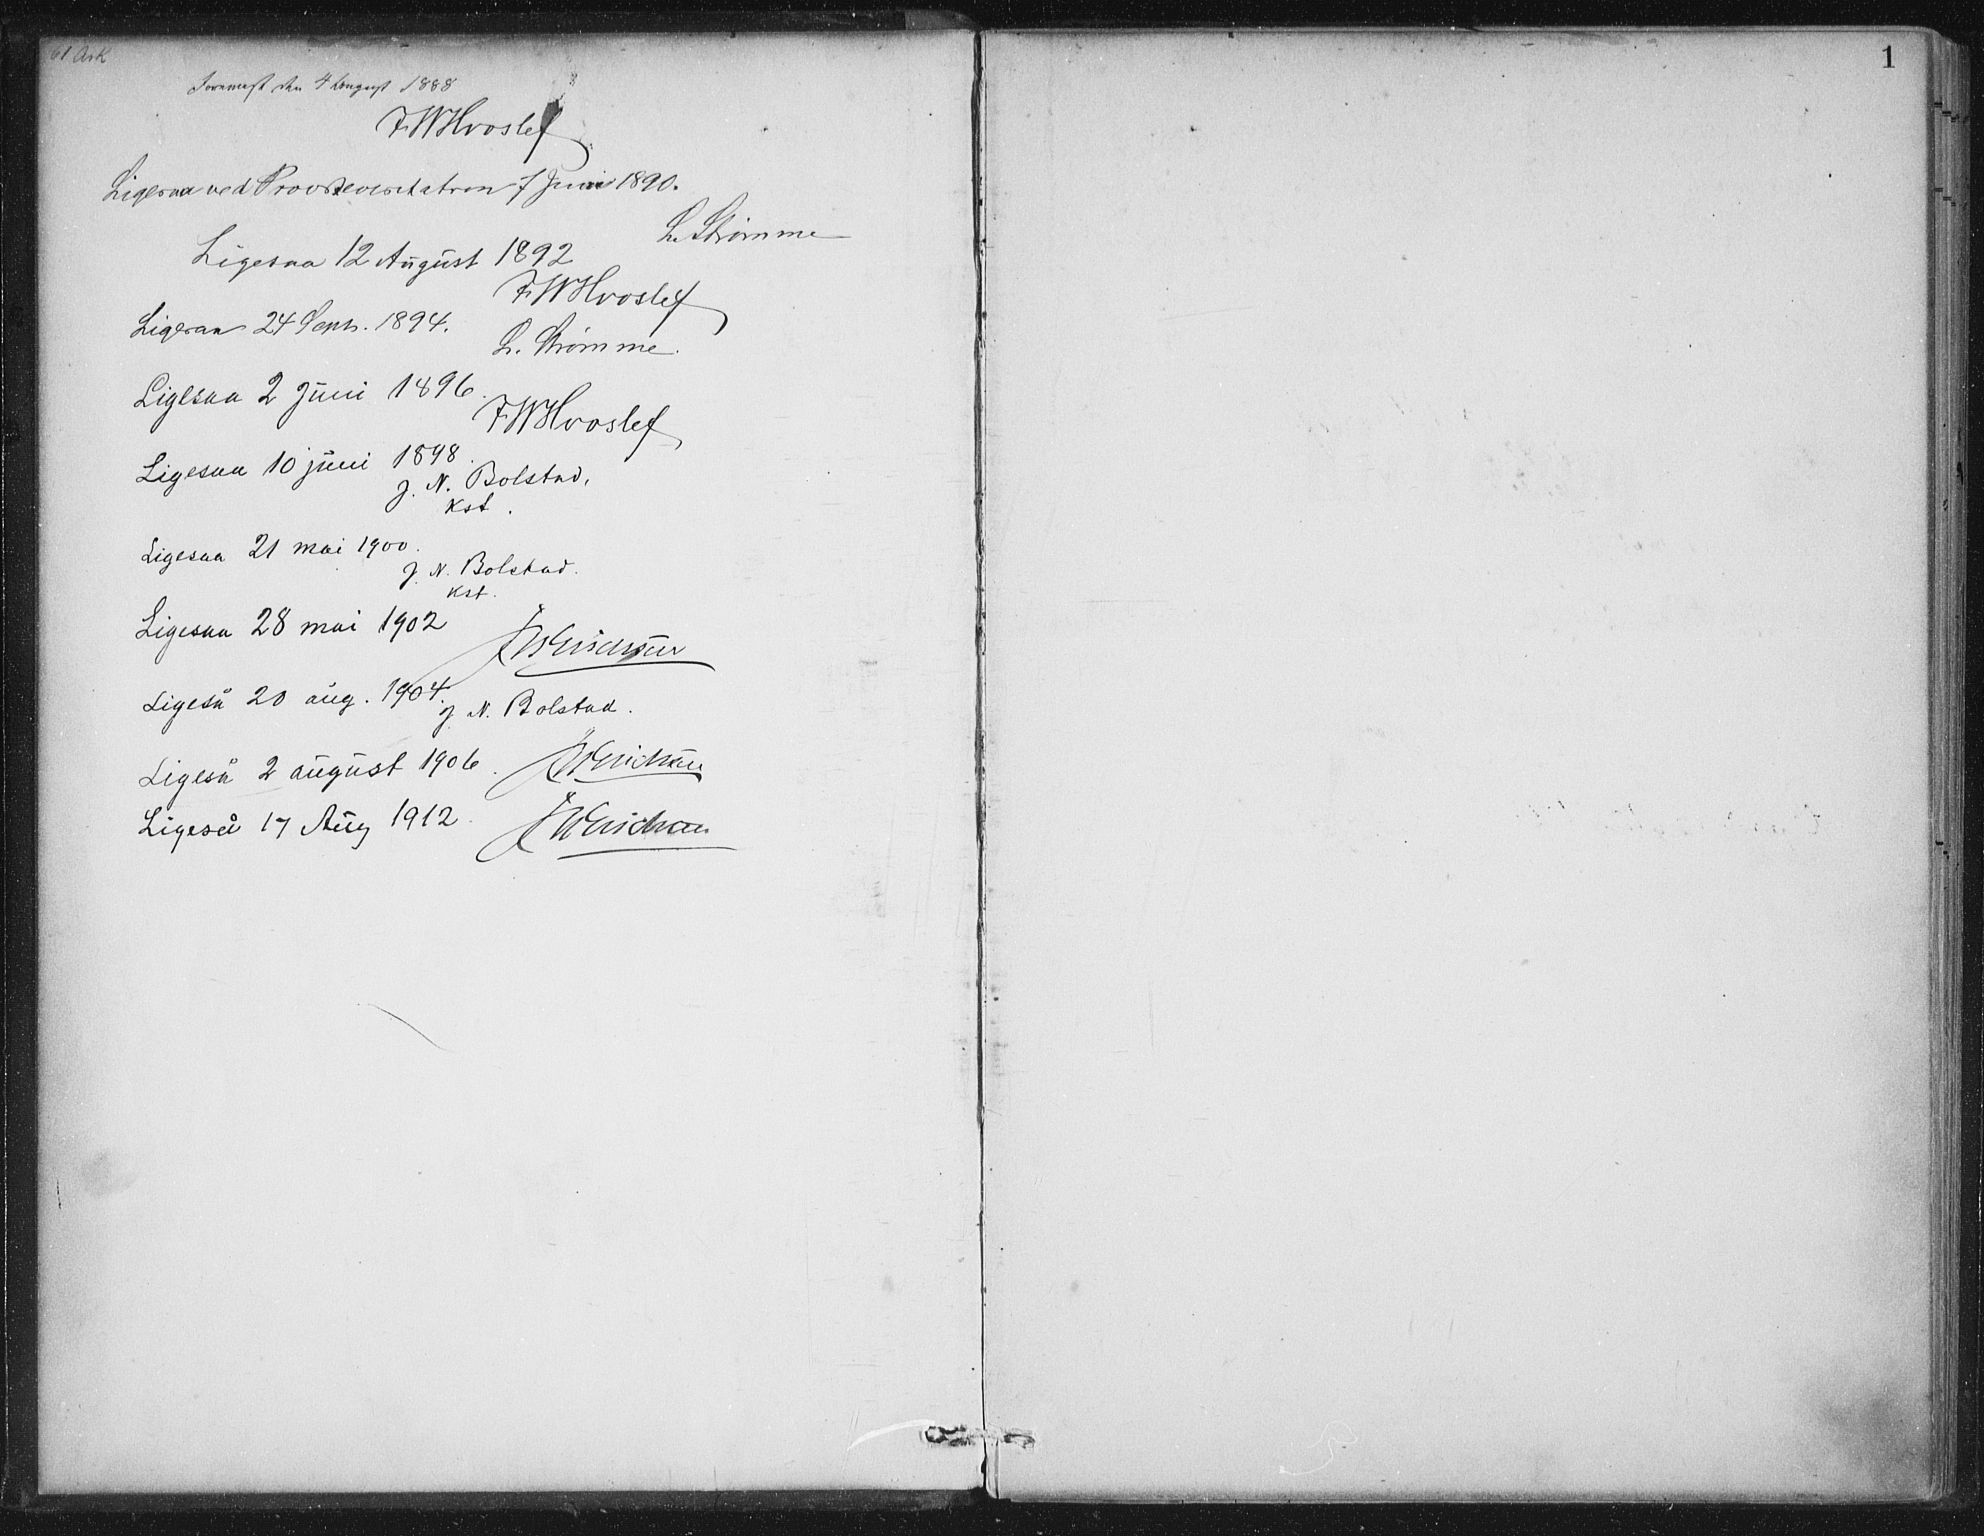 61 Ark
den 4 August 1888
FWHvoslef
Ligesaa ved Provstevisitatsen 7 Juni 1890.
L. Strømme
Ligesaa 12 August 1892
FWHvoslef
Ligesaa 24 Septr. 1894.
L. Strømme.
Ligesaa 2 Juni 1896.
FWHvoslef
Ligesaa 10 juni 1898.
J. N. Bolstad,
kst.
Ligesaa 21 mai 1900.
J. N. Bolstad.
kst.
Ligesaa 28 mai 1902
Ligeså 20 aug. 1904.
J. N. Bolstad.
Ligeså 2 august 1906.
Ligeså 17 Aug 1912.
1